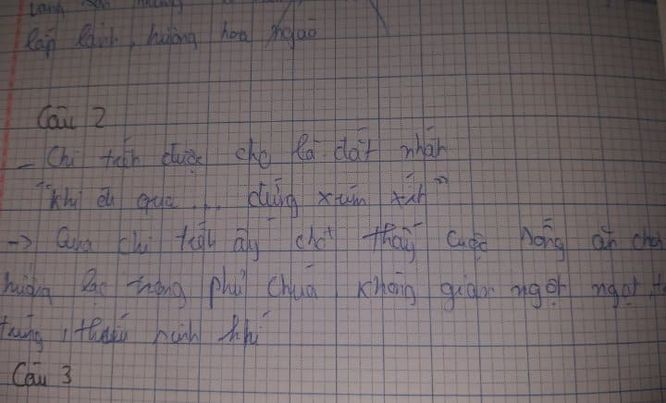 lấp lánh, hương hoa ngào
Câu 2
- Chi tiết được cho là đắt nhất
"khi đi qua ... đứng xúm xít"
-> Qua chi tiết ấy cho thấy cuộc sống ăn chơi
hưởng lạc trong phủ chúa, không gian ngột ngạt, t
thiếu sinh khí
Câu 3